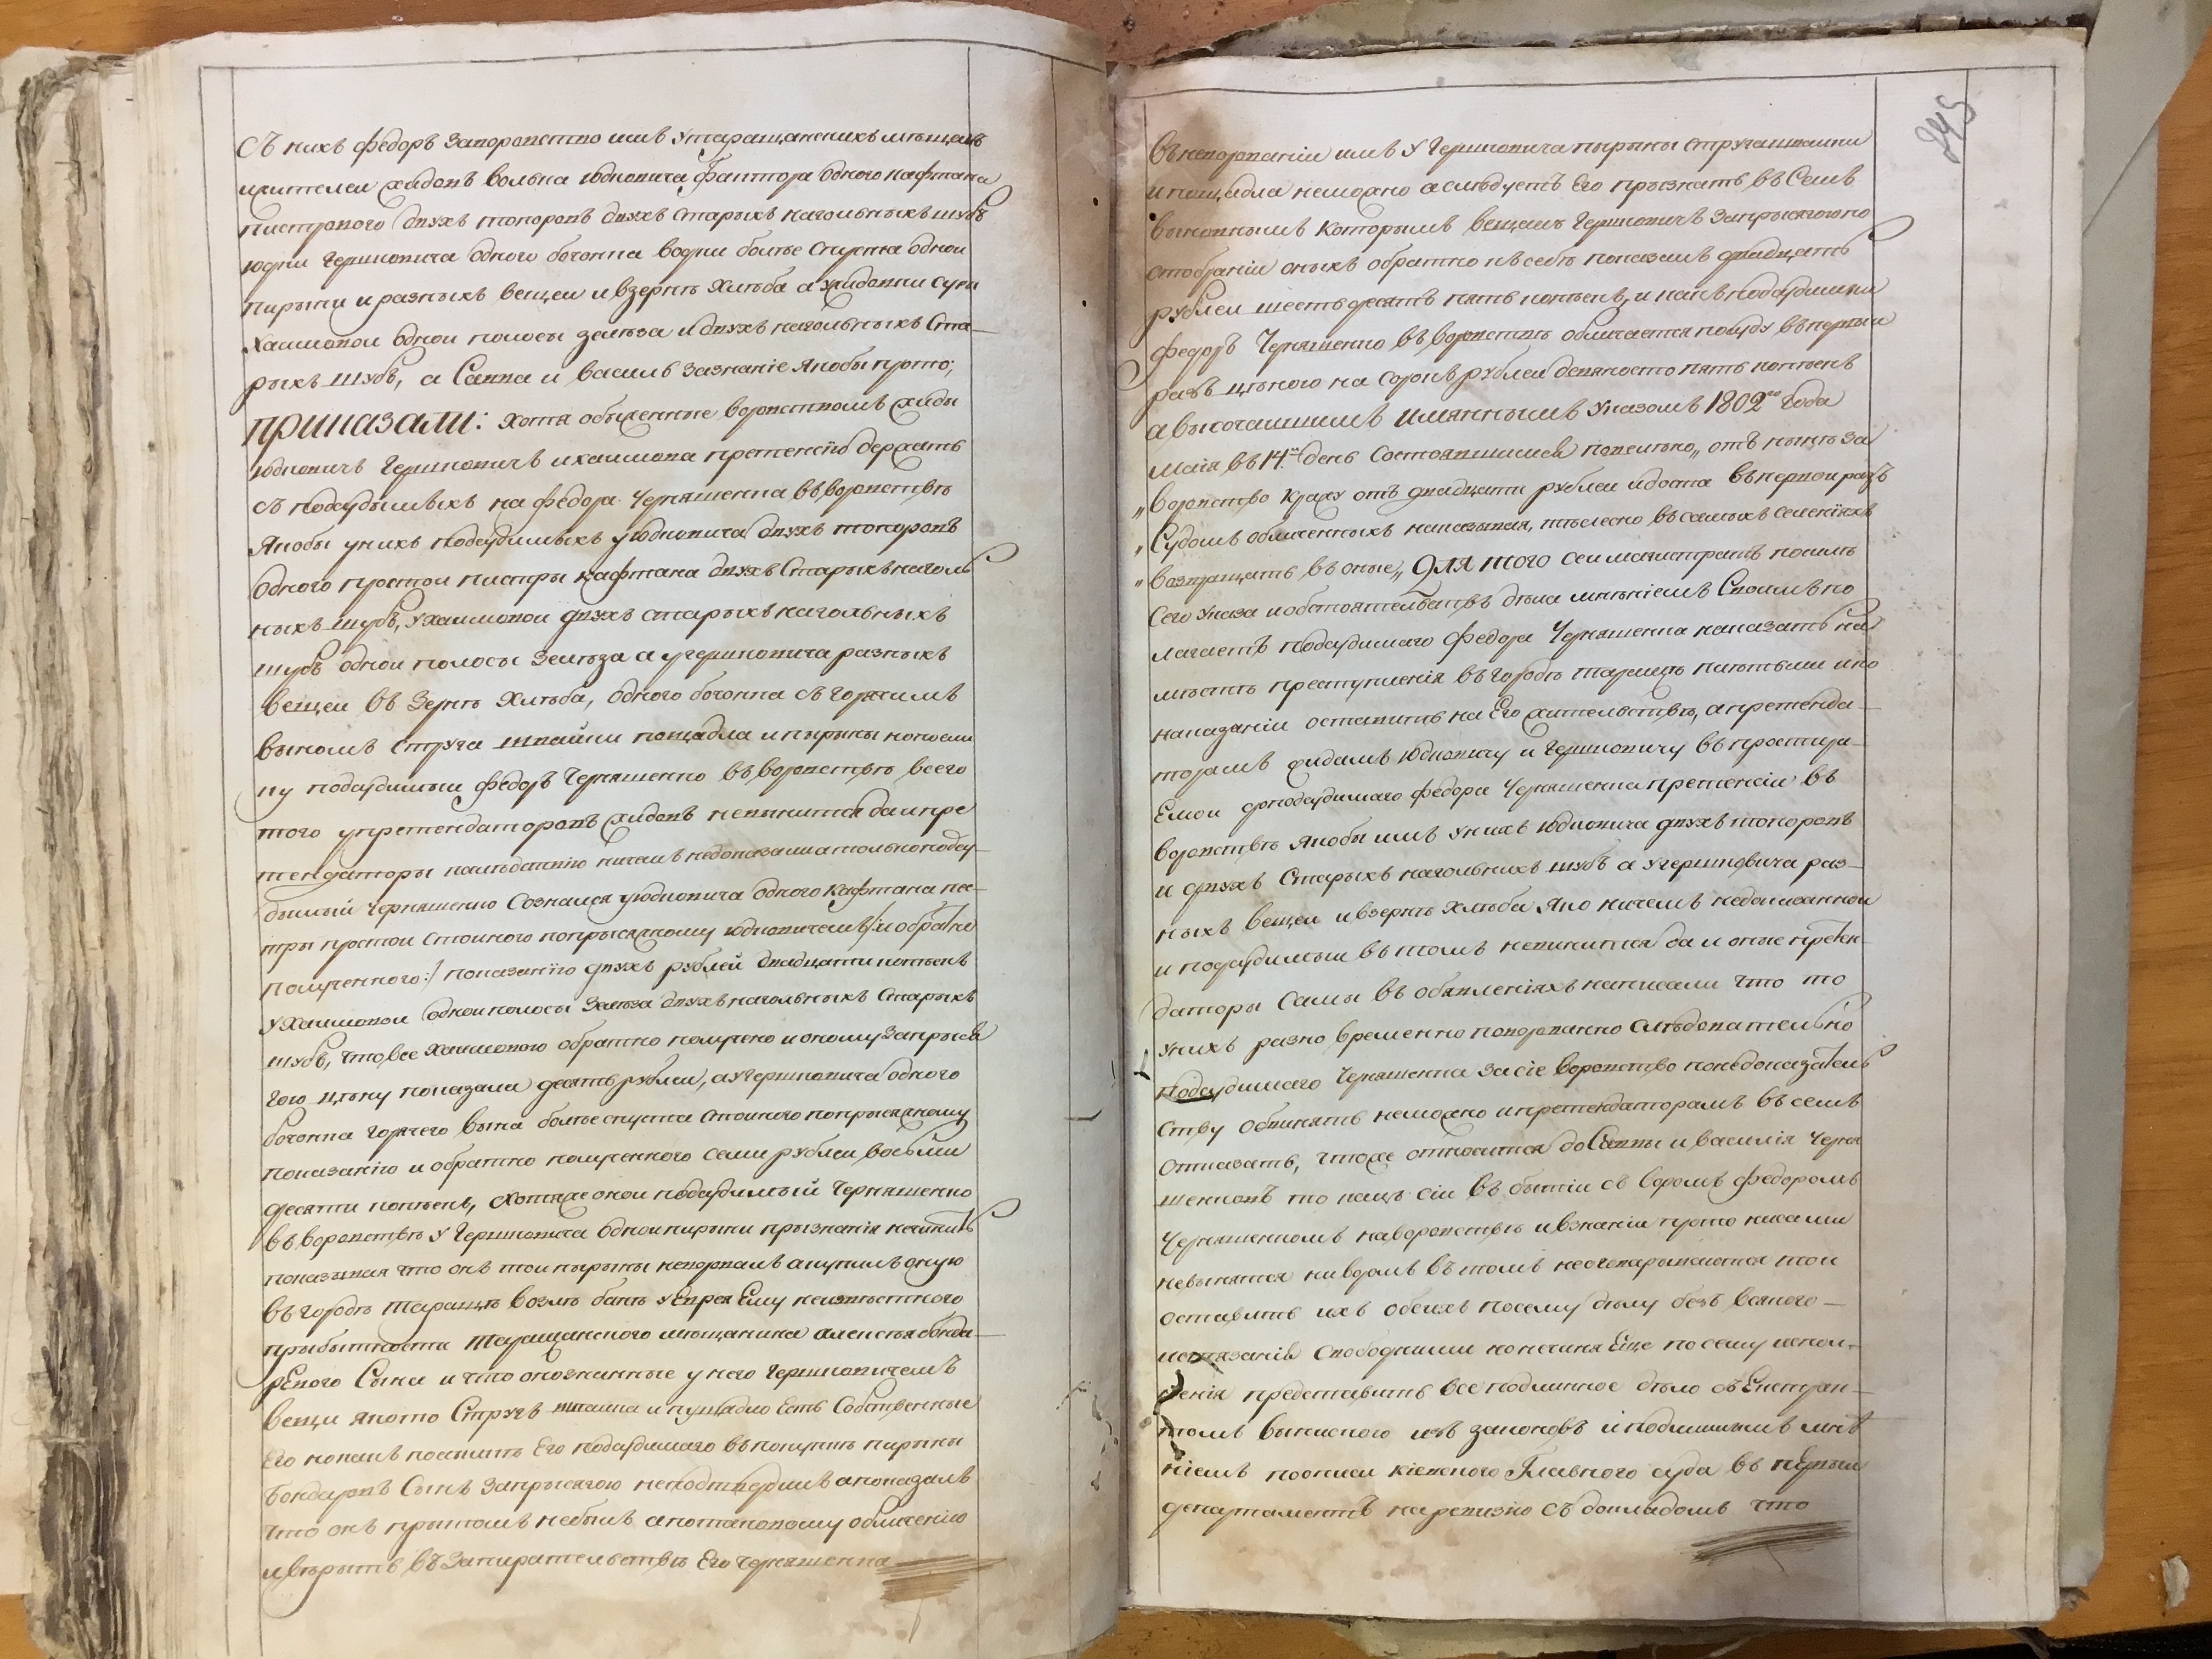 съ нихъ Федоръ Заворовство имъ у таращанскихъ мещанъ
жителей жидовъ волька Юдковича фактора одного кафтана
пистрового двухъ топоровъ двухъ старыхъ нагольныхъ шубъ
Юдки Гершковича одного боченка водки более спуста одной
пирыны и разныхъ вещей и взерне хлеба а жидовки суки
хаимовои одной полосы зелеза и двухъ нагольныхъ ста-
рыхъ шубъ, а Савка и василь за знание якобы прото;
приказали: хотя объявленные воровствомъ жиды
Юдковичъ Гершковичъ и хаимова претенсию держать
съ подсудымыхъ на федора Черняшенка въ воровстве
якобы у нихъ подсудимыхъ у Юдковича двухъ топоровъ
одного простой пистры кафтана двухъ старыхъ наголь
ныхъ шубъ, у хаимовой двухъ старыхъ нагольныхъ
шубъ одной полосы зелеза а у гершковича разныхъ
вещей въ зерне хлеба, одного боченка съ горячимъ
выномъ струга шпайки поцадла и пырыны но поели
ку подсудимый федоръ Черняшенко въ воровстве всего
того у претендаторовъ жидовъ невынится да и пре
тендаторы наследствию ничемъ недоказали а только подсу-
дымый Черняшенко сознался у юдковича одного кафтана пи-
стры простой стоиного по прысяжному юдковичемъ /: и обратно
полученного :/ показанию двухъ рублей двадцати копеекъ
у хаимовой одной полосы зелеза двухъ нагольныхъ старыхъ
шубъ, что все хаимовою обратно получено и оному за прыся
гою цену показали десять рублей, а у гершковича одного
боченка горячего вына более спуста стоиного по прысяжному
показанию и обратно полученного семи рублей восьми
десяти копеекъ, хотя же оной подсудимый Черняшенко
въ воровстве у Гершковича одной пирыни прызнания нечинитъ
показывая что онъ той пырыны неворовалъ а купилъ оную
въ городе Тараще возле бань у еврея Ему неизвестного
прыбытности таращанского мещанина алексея бонда-
рЕвого Сына и что опознанные у него Гершковичемъ
вещи якото Стругъ шпайка и пущадло Есть Собственные
Его но какъ посылить Его подсудимаго въ покупке пирыны
бондаровъ Сынъ за прысягою неподтвердилъ а показалъ
что онъ прытомъ небылъ а потаковому обличению
и верыть въ запирательстве Его Черняшенка
245
въ неворовании имъ у Гершковича пырыны струга шпайки
и поцадла неможно а следуетъ Его прызнать въ Семъ
выновнымъ которымъ вещамъ Гершковичъ за прысягою по
отобрании оныхъ обратно къ себе показалъ двадцать
рублей шестьдесятъ пять копеекъ, и какъ подсудимый
федоръ Черняшенко въ воровстве обличается по суду въ первый
разъ ценою на сорокъ рублей девяносто пять копеекъ
а высочаишимъ имяннымъ указомъ 1802го года
Маия въ 14й день Состоявшимся повелено,, отъ ныне за
,, воровство кражу отъ двадцати рублей и до ста въ первой разъ
,, Судомъ обличенныхъ наказывая, телесно въ самыхъ селенияхъ
,, возвращать въ оные,, Для того сей магистратъ посиле
сего указа и обстоятельствъ дела мнениемъ своимъ по
лагаетъ подсудимаго Федора Черняшенка наказать на
месте преступления въ городе Тараще плетьми и по
наказании оставить на Его жительстве, а претенда-
торамъ жидамъ Юдковичу и Гершковичу въ простира-
Емой до подсудимаго Федора Черняшенка претенсии въ
воровстве якобы имъ у нихъ юдковича двухъ топоровъ
и двухъ старыхъ нагольныхъ шубъ а у гершковича раз-
ныхъ вещей и взерне хлеба яко ничемъ недоказанной
и подсудимый въ томъ невынится да и оные претен-
даторы сами въ объявленияхъ написали что то
у нихъ разно временно поворованно следовательно
подсудимаго Черняшенка за сие воровство по недоказатель
ству обвинять неможно и претендаторамъ въ семъ
отказать, чтоже относится до Саввы и василия Черня
шенковъ то какъ сии въ бытии съ воромъ федоромъ
Черняшенкомъ на воровстве и взнании прото ныкали
невынятся ни воромъ въ томъ неоговарываются то и
оставить ихъ обеихъ по сему делу безъ всякого
истязания свободными но нечиня Еще по сему испол-
нения представить все подлинное дело съ Екстрак-
томъ выпискою изъ законовъ и подлиннымъ мне
ниемъ посписи киевского Главного суда въ первый
департаментъ на ревизию съ докладомъ что